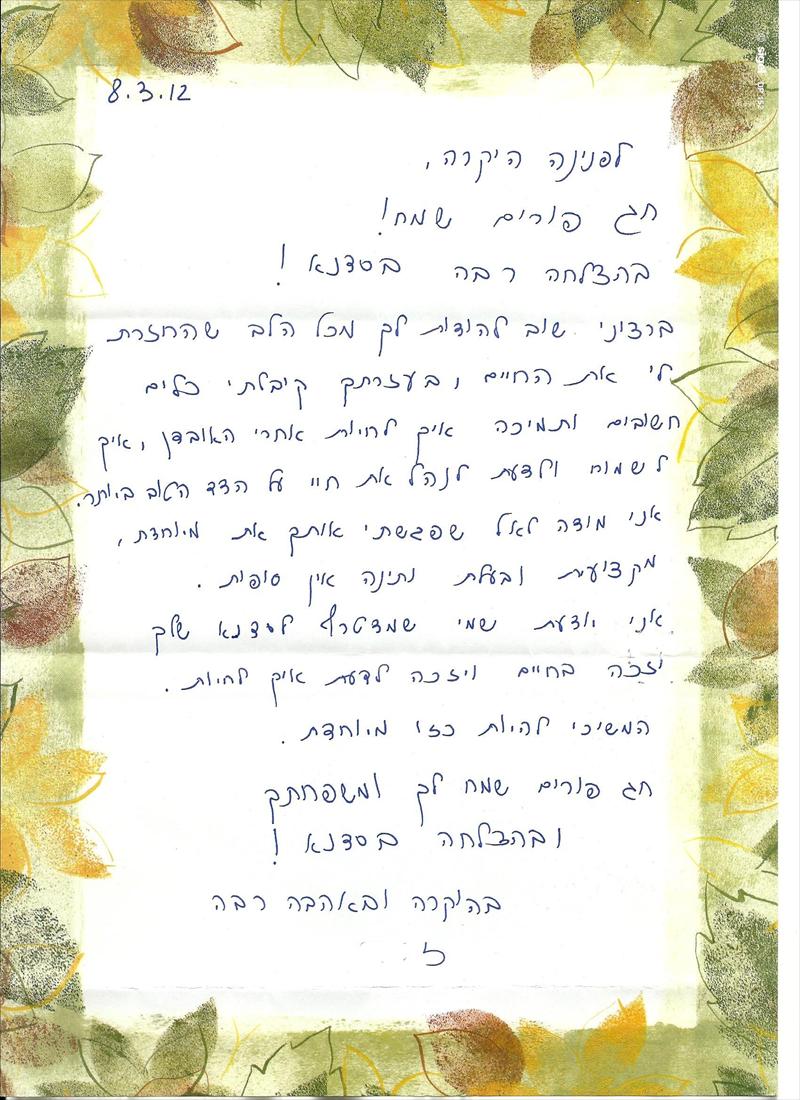 8.3.12
לפנינה היקרה,
חג פורים שמח!
בהצלחה רבה בסדנא!
ברצוני שוב להודות לך מכל הלב שהחזרת
לי את החיים ובעזרתך קיבלתי כלים
חשובים ותמיכה איך לחיות אחרי האובדן, איך
לשמוח ולדעת לנהל את חיי על הצד הטוב ביותר.
אני מודה לאל שפגשתי אותך את מיוחדת,
מקצועית ובעלת נתינה אין סופית.
אני יודעת שמי שמצטרף לסדנא שלך
יזכה בחיים ויזכה לדעת איך לחיות.
המשיכי להיות כזו מיוחדת.
חג פורים שמח לך ומשפחתך
ובהצלחה בסדנא!
בהוקרה ובאהבה רבה
ל